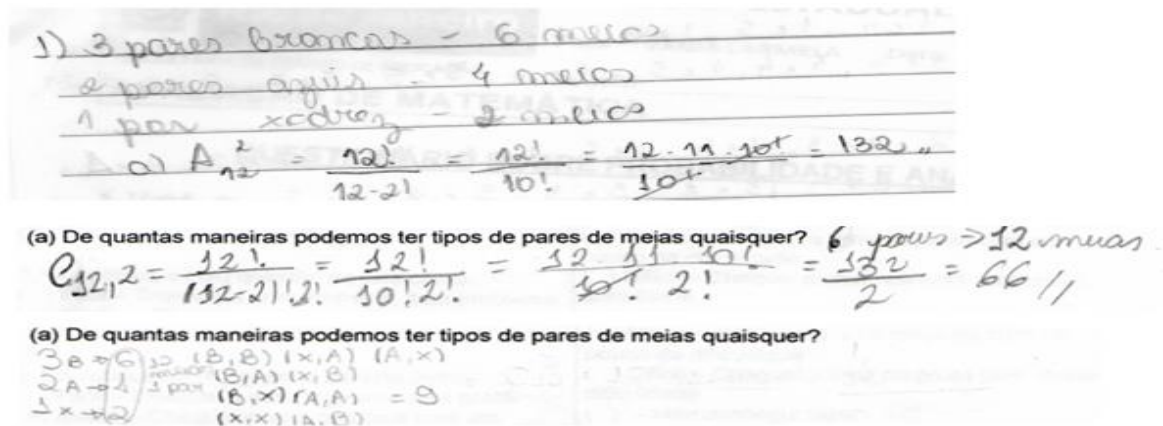 1) 3 pares brancas - 6 meias
2 pares azuis - 4 meias
1 par xadrez - 2 meias
a) A₁₂² = 12!/12-2! = 12!/10! = 12·11·10!/10! = 132 //
(a) De quantas maneiras podemos ter tipos de pares de meias quaisquer? 6 pares => 12 meias
C₁₂,₂ = 12!/(12-2)!2! = 12!/10!2! = 12 11 10!/10! 2! = 132/2 = 66 //
(a) De quantas maneiras podemos ter tipos de pares de meias quaisquer?
3B → 6 12 (B,B) (x,A) (A,x)
2A → 4 meias 1 par (B,A) (x,B)
1x → 2 (B,x) (A,A) = 9
(x,x) (A,B)